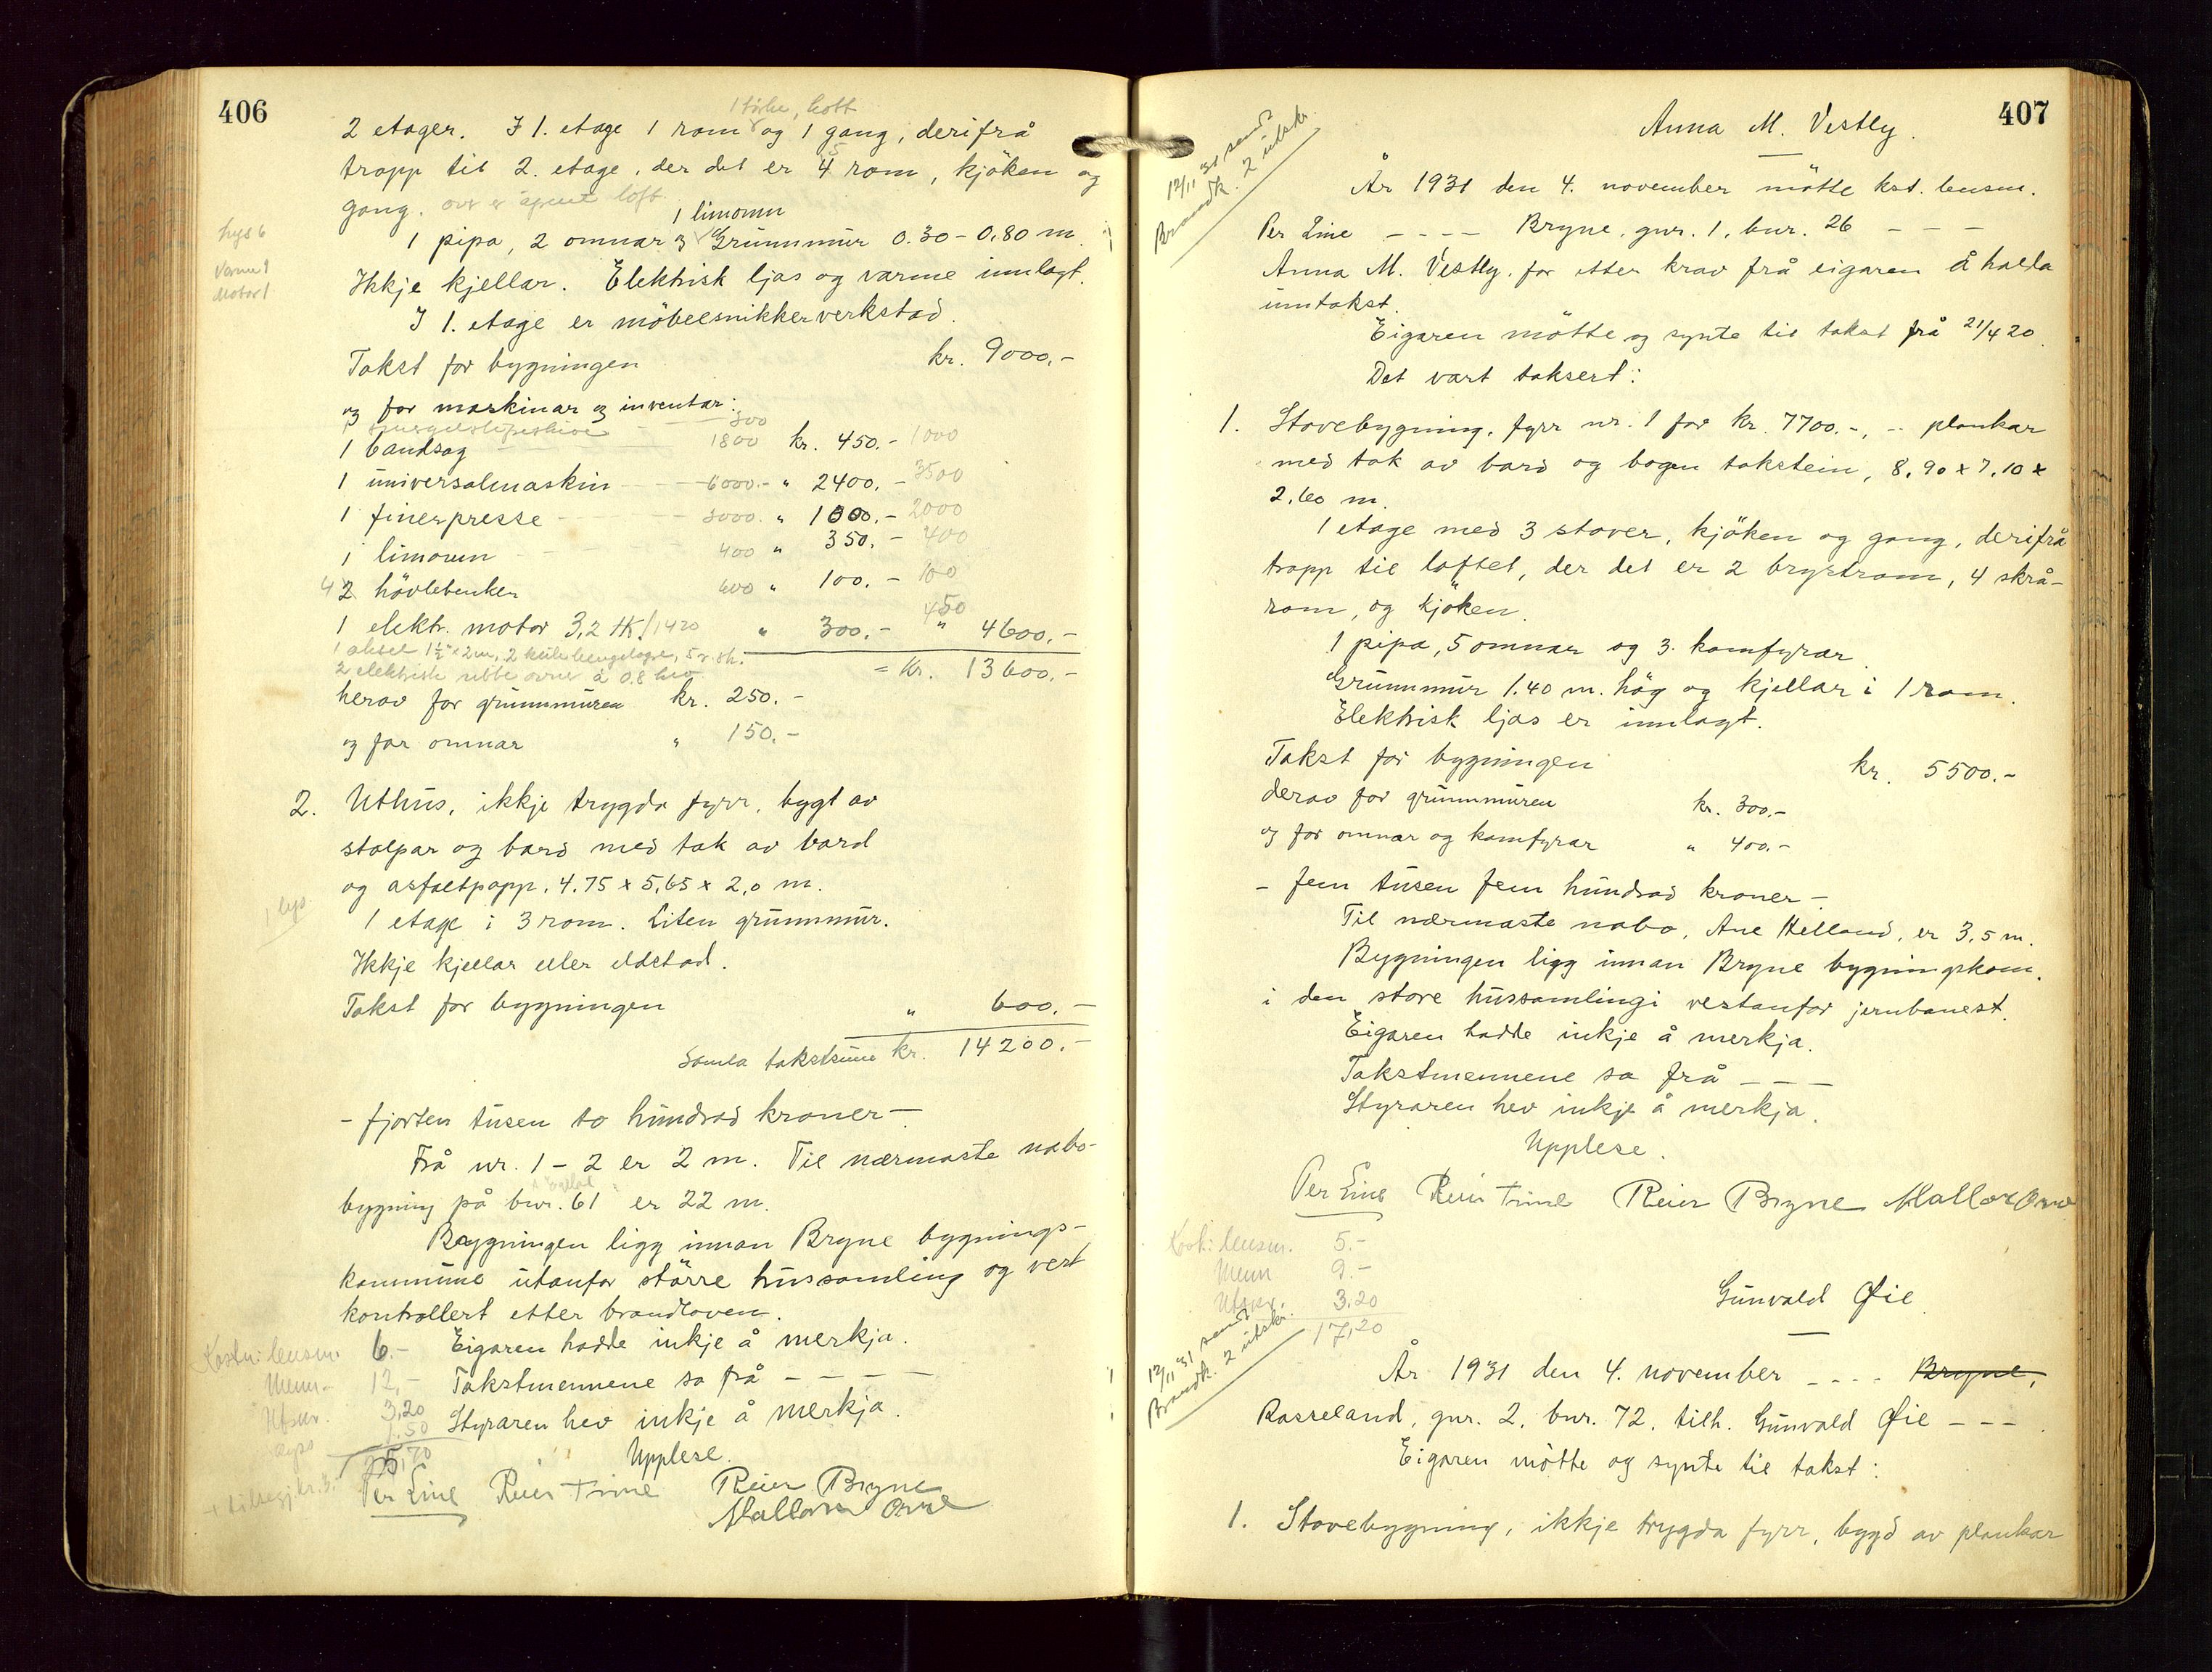 406
1 tørke, kott
2 etager. I 1. etage 1 rom og 1 gang, derifrå
5
trapp til 2. etage, der det er 4 rom, kjöken og
gang. over er loft.
1 limomn
lys 6
1 pipa, 2 omnar og Grunnmür 0.30 - 0.80 m.
Varme 9
Motor 1
Ikkje kjellar. Elektrisk ljos og varme innlagt.
I 1. etage er möbelsnikkerverkstad.
Takst for bygningen kr. 9000.-
og for maskinar og inventar:
300
1 bandsag 1800 kr. 450.- 1000
1 universalmaskin 6000.- " 2400.- 3500
1 finerpresse 3000. " 1000.- 2000
1 limomn 400 " 350.- 400
4 2 hövlebenker 600 " 100.- 100
450
1 elektr. motor 3,2 HK./1420 " 300.- " 4600.-
1 aksel 1½" x 2m, 2 kule hengelagre, 5 r. sk.
= kr. 13600.-
2 elektriske ribbe ovner à 0.8 kw
herav for grunnmüren kr. 250.-
og for omnar " 150.-
2. Uthus, ikkje trygda fyrr, bygt av
stolpar og bord med tak av bord
og asfaltpapp, 4.75 x 5,65 x 2,0 m.
1 lys
1 etage i 3 rom. Liten grunnmür.
Ikkje kjellar eller eldstad.
Takst for bygningen " 600.-
Samla takstsum kr. 14200.-
- fjorten tusen to hundrad kroner -
Frå nr. 1 - 2 er 2 m. Til nærmaste nabo-
bygning på bnr. 61 er 22 m.
Bygningen ligg innan Bryne bygnings-
kommune utanfor större hussamling og vert
kontrollert etter brandloven.
Kostn: lensm. 6.- Eigaren hadde inkje å merkja.
Menn- 12,- Takstmennene sa frå - - - -
Utskr. 3,20
1.50 Styraren hev inkje å merkja.
Upplese.
+ tillegg kr. 3.
Per Line Reier Trine Reier Bryne
Orre
407
12/11 31 sendt
Brandk. 2 utskr.
Anna M. Vestly.
År 1931 den 4. november mötte kst. lensm.
Per Line - - - - Bryne, gnr. 1, bnr. 26 - - -
Anna M. Vestly, for etter krav frå eigaren å halda
umtakst.
Eigaren mötte og synte til takst frå 21/4 20.
Det vart taksert:
1. Stovebygning, fyrr nr. 1 for kr. 7700.-, -- plankar
med tak av bord og bogen takstein, 8,90 x 7,10 x
2,60 m.
1 etage med 3 stover, kjöken og gang, derifrå
trapp til loftet, der det er 2 brystrom, 4 skrå-
rom, og kjöken.
1 pipa, 5 omnar og 3 komfyrar.
Grunnmür 1.40 m. hög og kjellar i 1 rom.
Elektrisk ljos er innlagt.
Takst for bygningen kr. 5500.-
derav for grunnmüren kr. 300.-
og for omnar og komfyrar " 400.-
- fem tusen fem hundrad kroner -.
Til nærmaste nabo, Ane Helland, er 3,5 m.
Bygningen ligg innan Bryne bygningskom.
i den store hussamlingi vestanfor jernbanest.
Eigaren hadde inkje å merkja.
Takstmennene sa frå - - -
Styraren hev inkje å merkja.
Upplese.
Per Line Reier Trine Reier Bryne
Kost: lensm. 5.-
Menn 9.-
Utskr. 3.20
17,20
Gunvald Øie
12/11 31 sendt
Brandk. 2 utskr.
År 1931 den 4. november - - - - Bryne,
Rosseland, gnr. 2, bnr. 72, tilh. Gunvald Øie - - -
Eigaren mötte og synte til takst:
1. Stovebygning, ikkje trygda fyrr, bygd av plankar